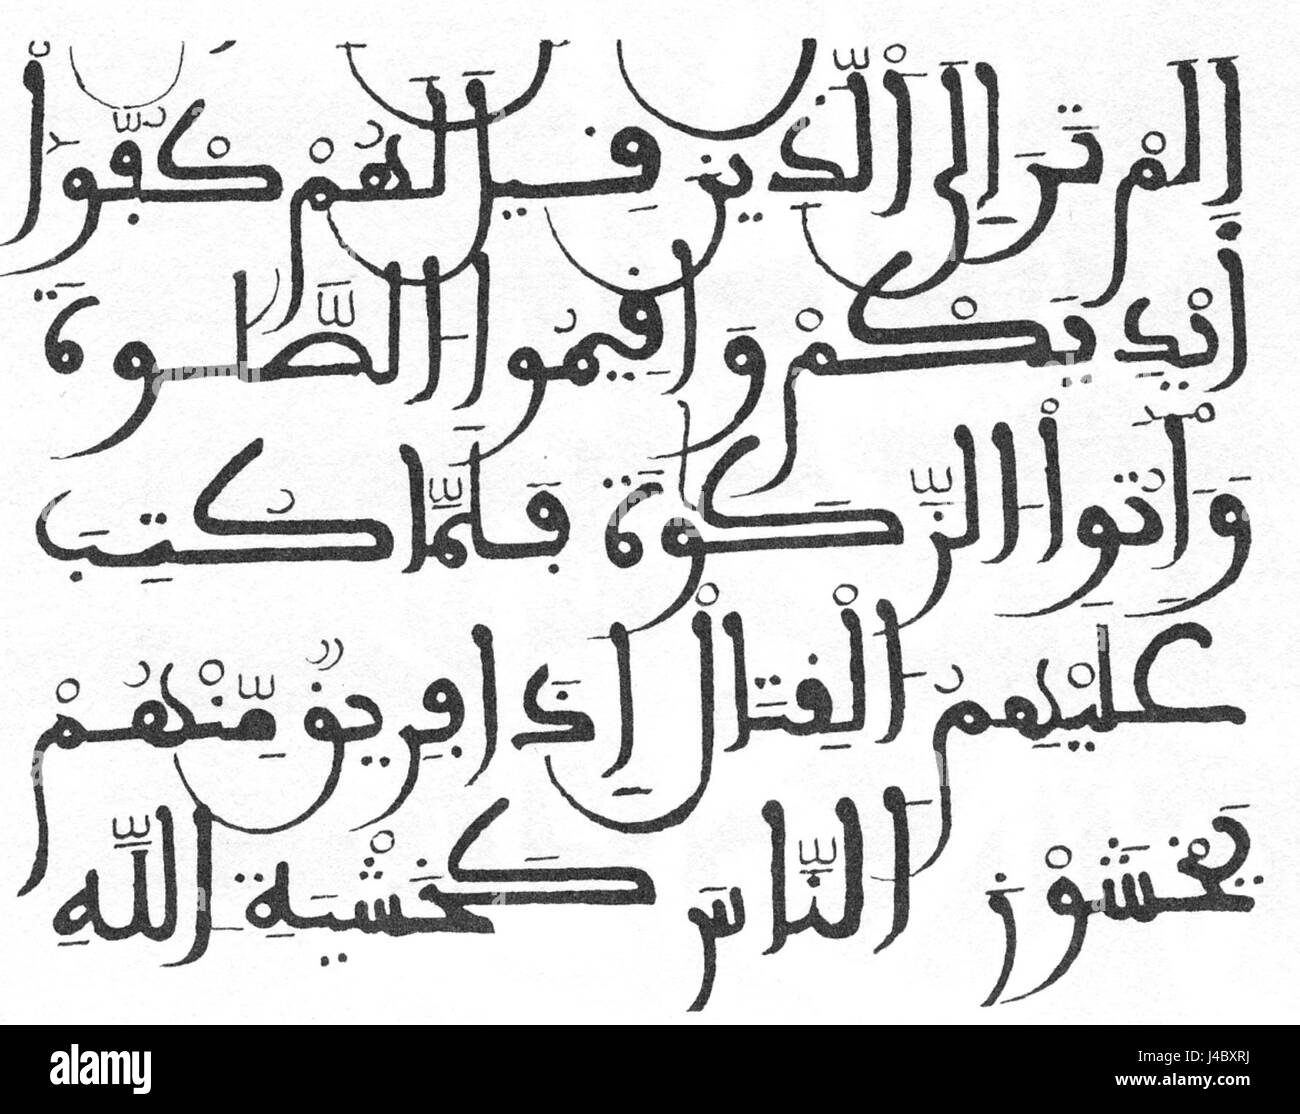 اَلَمْ تَرَ إِلَى اَ۬لذِينَ قِيلَ لَهُمْ كُفُّوٓاْ
أَيْدِيَكُمْ وَأَقِيمُواْ اُ۬لصَّلَوٰةَ
وَءَاتُواْ اُ۬لزَّكَوٰةَ فَلَمَّا كُتِبَ
عَلَيْهِمُ اُ۬لْقِتَالُ إِذَا فَرِيقٌ مِّنْهُمْ
يَخْشَوْنَ اَ۬لنَّاسَ كَخَشْيَةِ اِ۬للَّهِ
alamy
alamy
Image ID: J4BXRJ
www.alamy.com